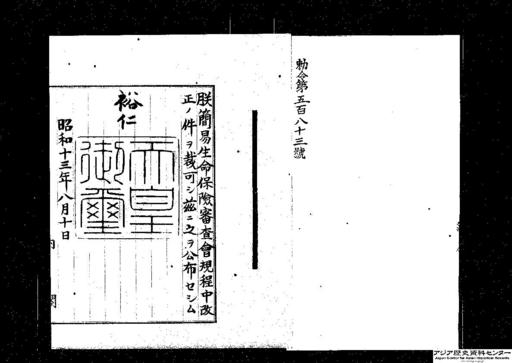 勅令第五百八十三號
朕簡易生命保險審査會規程中改
正ノ件ヲ裁可シ茲ニ之ヲ公布セシム
裕仁
天皇
御璽
昭和十三年八月十日
内
閣
アジア歴史資料センター
Japan Center for Asian Historical Records